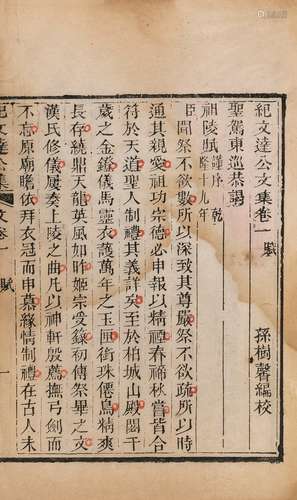 紀文達公文集卷一 賦
孫樹馨編校
聖駕東巡恭謁
祖陵賦 謹序 乾隆十九年
臣聞祭不欲數所以深致其尊嚴祭不欲疏所以時
通其親愛祖功宗德必申報以精禋春禘秋嘗皆合
符於天道聖人制禮其義詳矣至於柏城山殿閟千
歲之金鐙儀馬靈衣護萬年之玉匣銜珠僊鳥精爽
長存繞鼎天龍英風如昨姬宗受籙初傳祭畢之文
漢氏修儀屢奏上陵之曲凡以神軒殷薦撫弓劍而
不忘原廟瞻依拜衣冠而申慕緣情制禮在古人未
紀文達公集 文卷一 賦 一